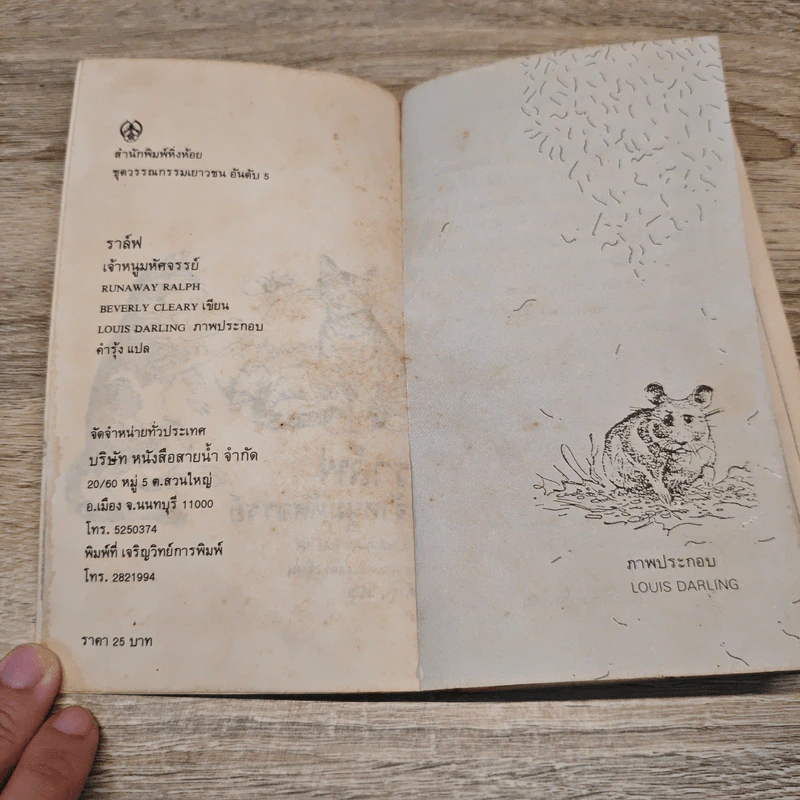 สำนักพิมพ์หิ่งห้อย
ชุดวรรณกรรมเยาวชน อันดับ 5
ราล์ฟ
เจ้าหนูมหัศจรรย์
RUNAWAY RALPH
BEVERLY CLEARY เขียน
LOUIS DARLING ภาพประกอบ
คำรุ้ง แปล
จัดจำหน่ายทั่วประเทศ
บริษัท หนังสือสายน้ำ จำกัด
20/60 หมู่ 5 ต.สวนใหญ่
อ.เมือง จ.นนทบุรี 11000
โทร. 5250374
พิมพ์ที่ เจริญวิทย์การพิมพ์
โทร. 2821994
ราคา 25 บาท
ภาพประกอบ
LOUIS DARLING